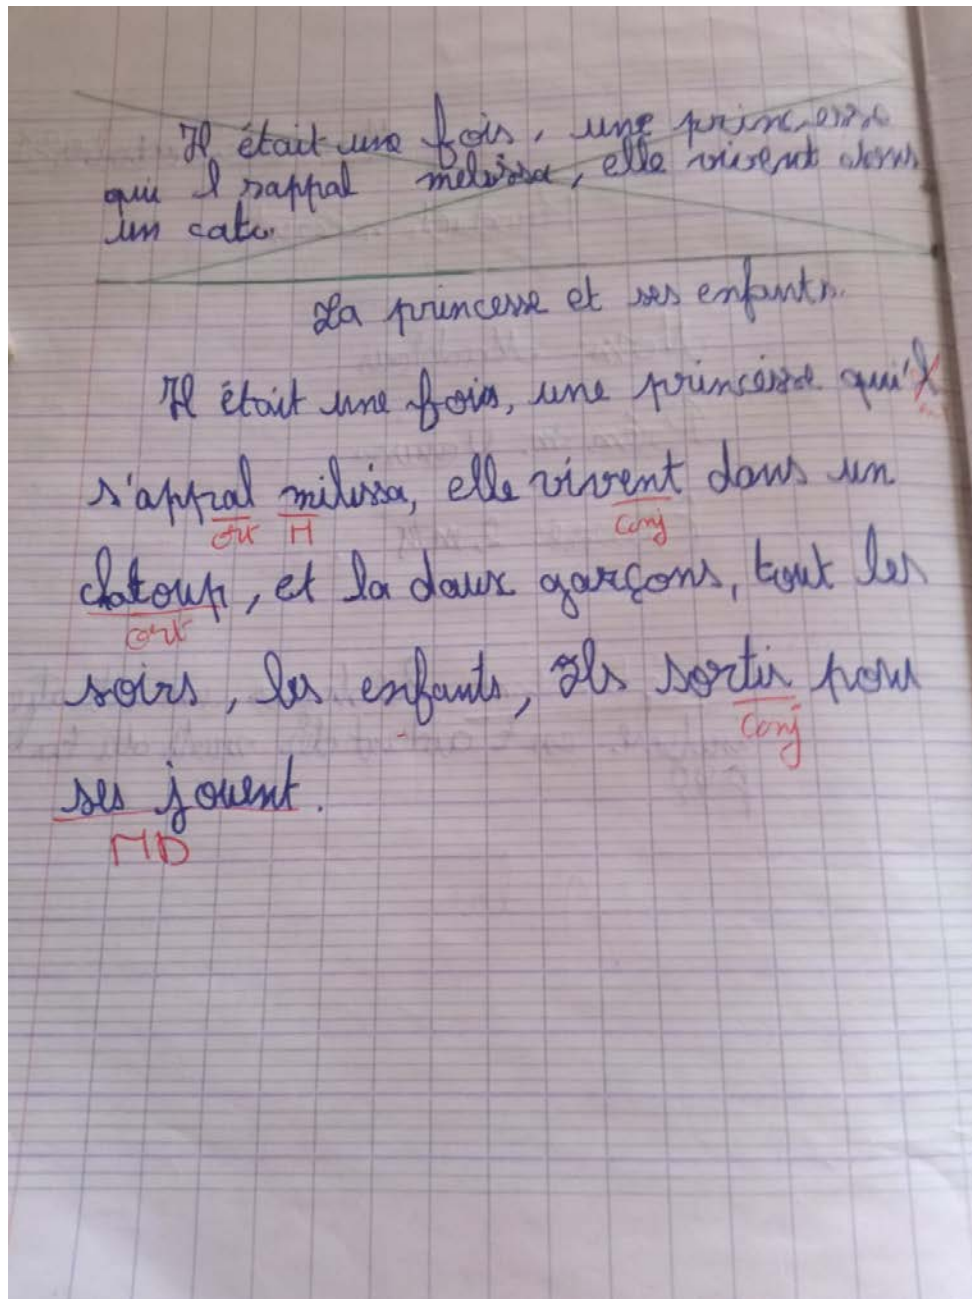 Il était une fois, une princesse
qui l sappal melissa, elle vivent dans
un cato
La princesse et ses enfants.
Il était une fois, une princesse qui'l
s'appral milissa, elle vivent dans un
ort M Conj
chatoup, et la daux garçons, tout les
ort
soirs, les enfants, Ils sortir pour
Conj
ses jouent.
MD